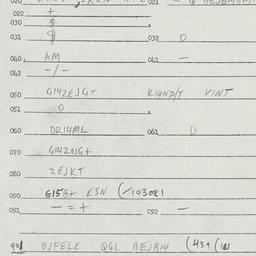 022 +
030 $
031 $ 032 0
040 AM 041 -
042 -/-
050 G14ZEJG+ K14ND/T VINT
051 0
060 DR14ML 061 0
070 G14ZOJG+
080 ZEJKT
090 G15B+ ESN (/103081
091 - = + 092 -
901 OJFELE QGL BEJB14 (43+(